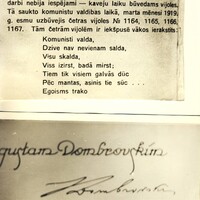 darbi nebija iespējami — kaveju laiku būvedams vijoles.
Tā saukto komunistu valdibas laikā, marta mēnesi 1919,
g. esmu uzbūvejis četras vijoles № 1164, 1165, 1166,
1167. Tām četrām vijolēm ir iekšpusē vākos ierakstīts:
Komunisti valda,
Dzīve nav nevienam salda,
Visu skalda,
Viss izirst, badā mirst;
Tiem tik visiem galvās dūc
Pēc mantas, asinis tie sūc . . .
Egoisms trako
Gustam Dombrovskim
Dombrovski